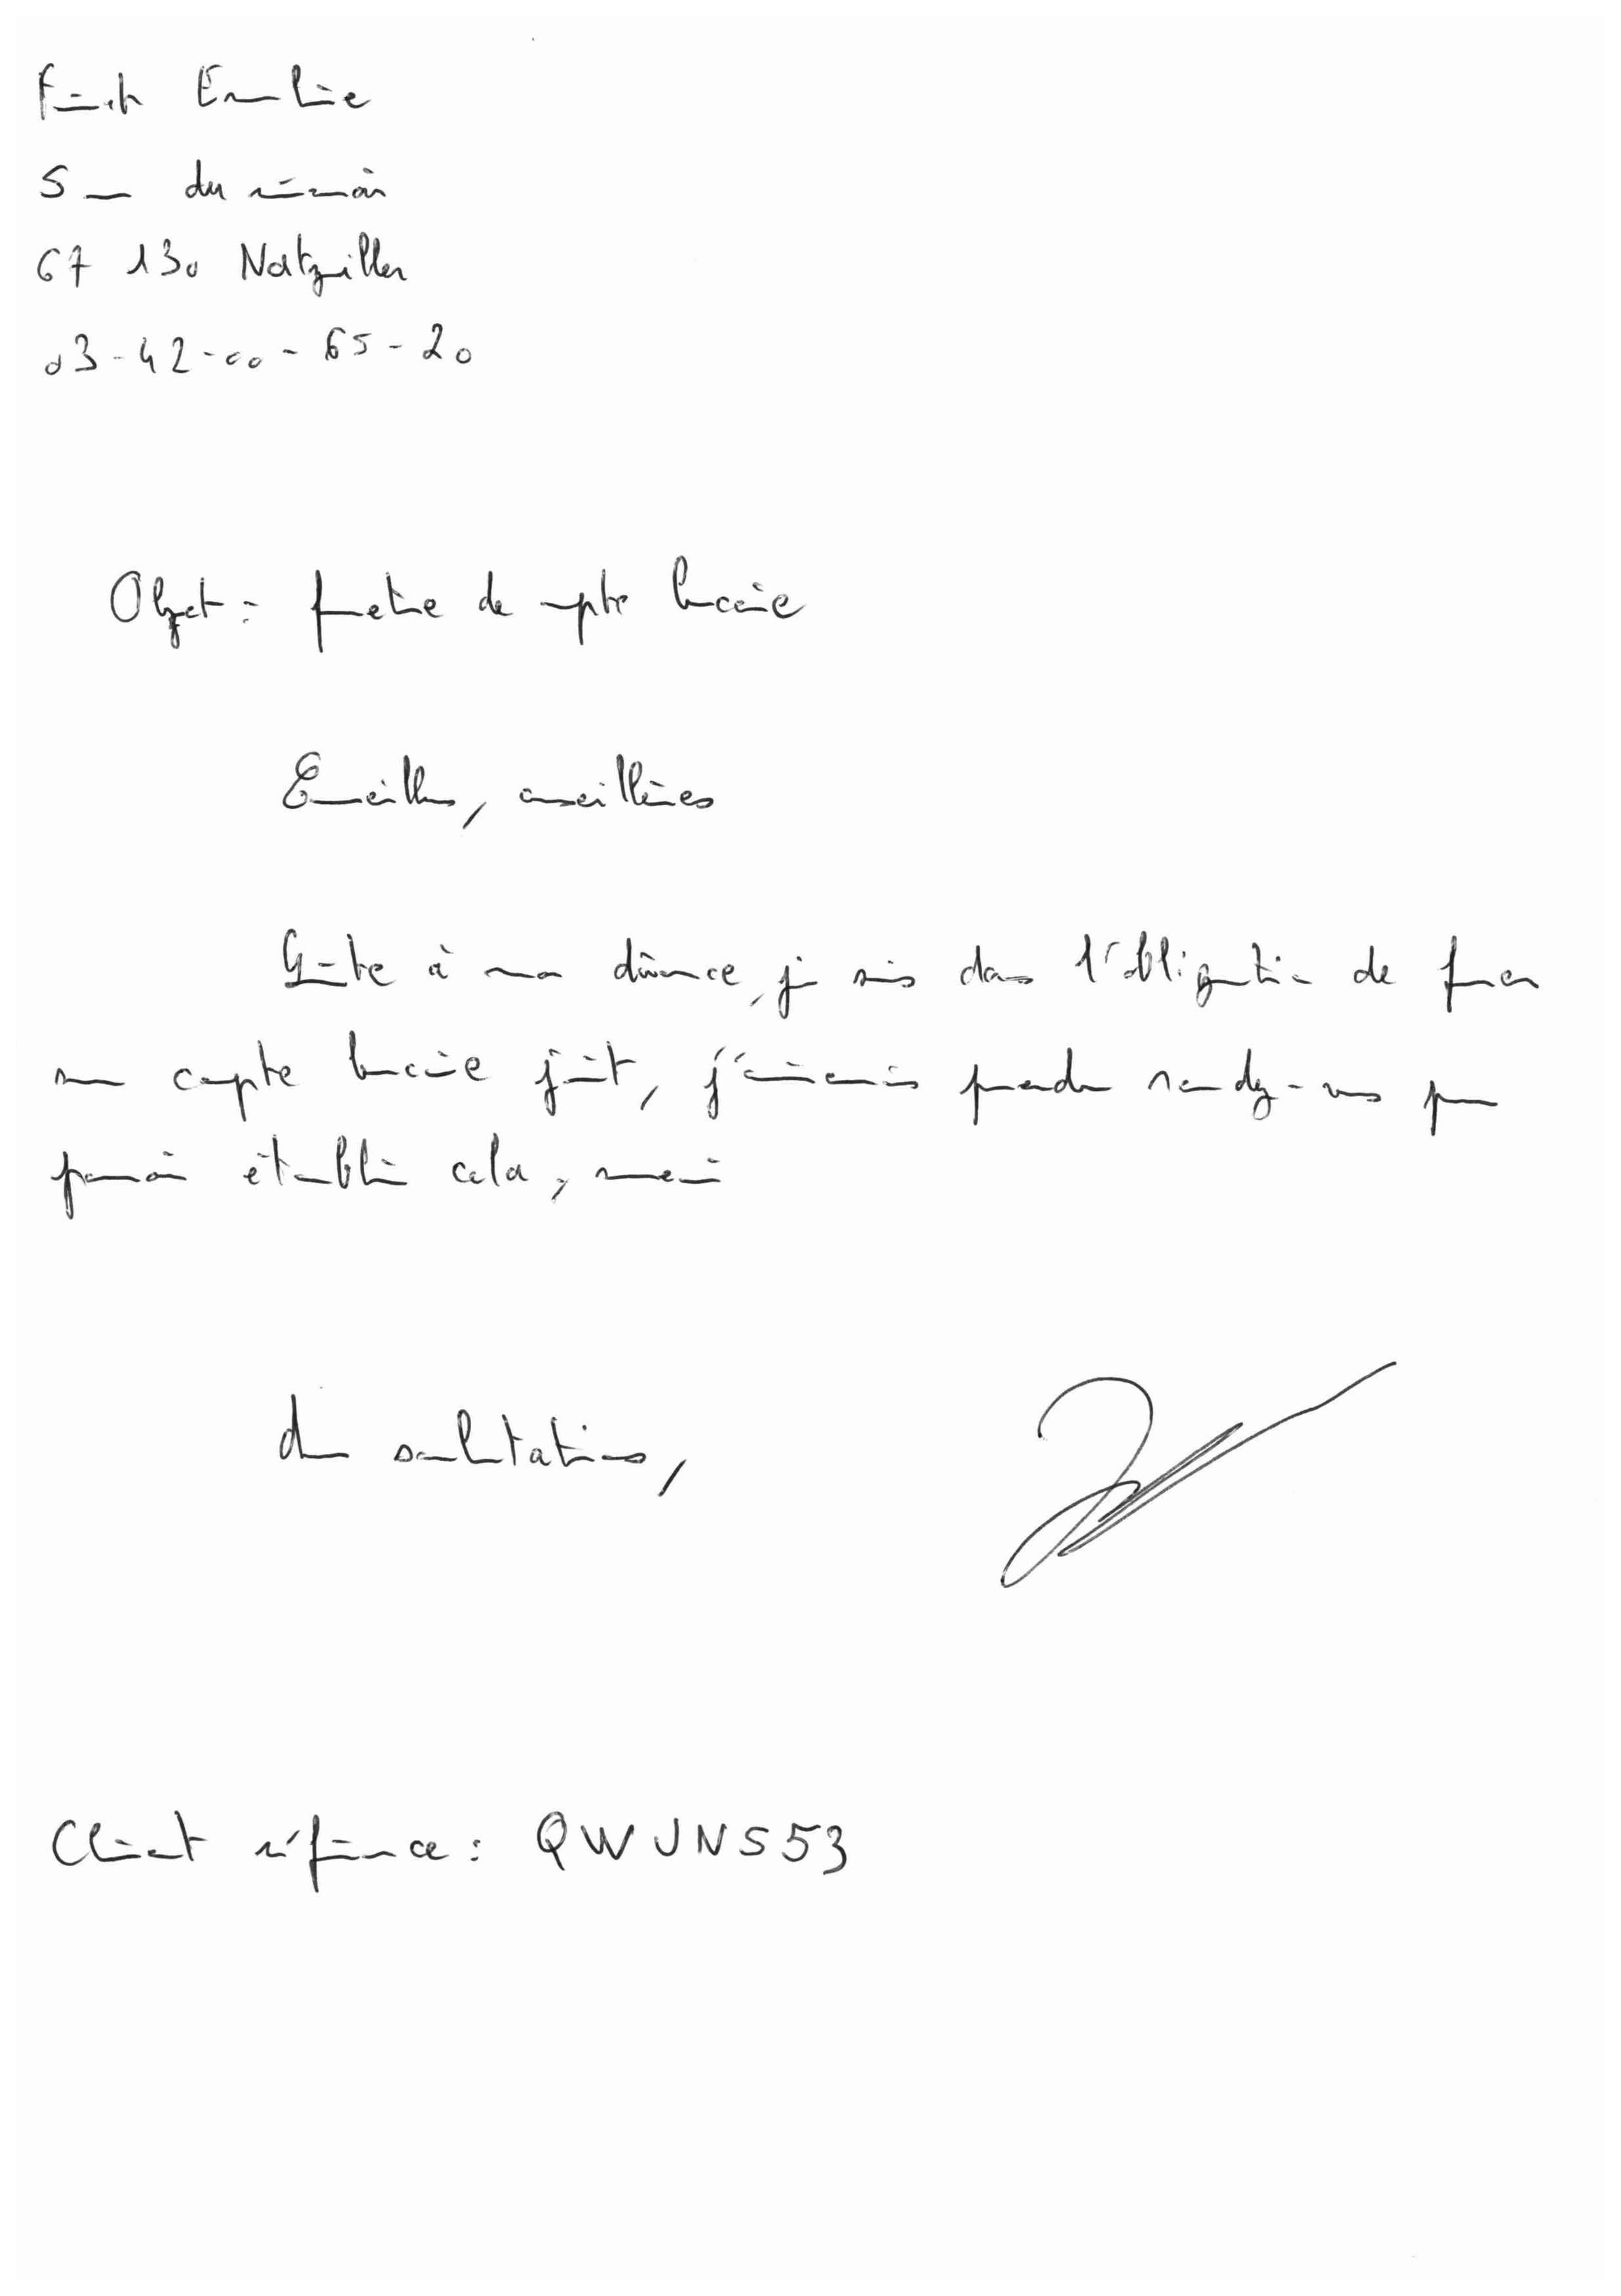 Emilie
5 rue du
67 130 Natzwiller
03-42-00-65-20
Objet : fermeture de compte bancaire
Conseillers, conseillères
Suite à mon divorce, je suis dans l'obligation de fermer
mon compte bancaire joint, j'aimerais prendre rendez-vous pour
pouvoir établir cela, merci
salutations,
Client référence : QWUNS53